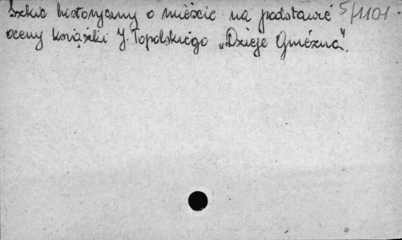 Szkic historyczny o mieście na podstawie 5/1101
oceny książki J. Topolskiego "Dzieje Gniezna".